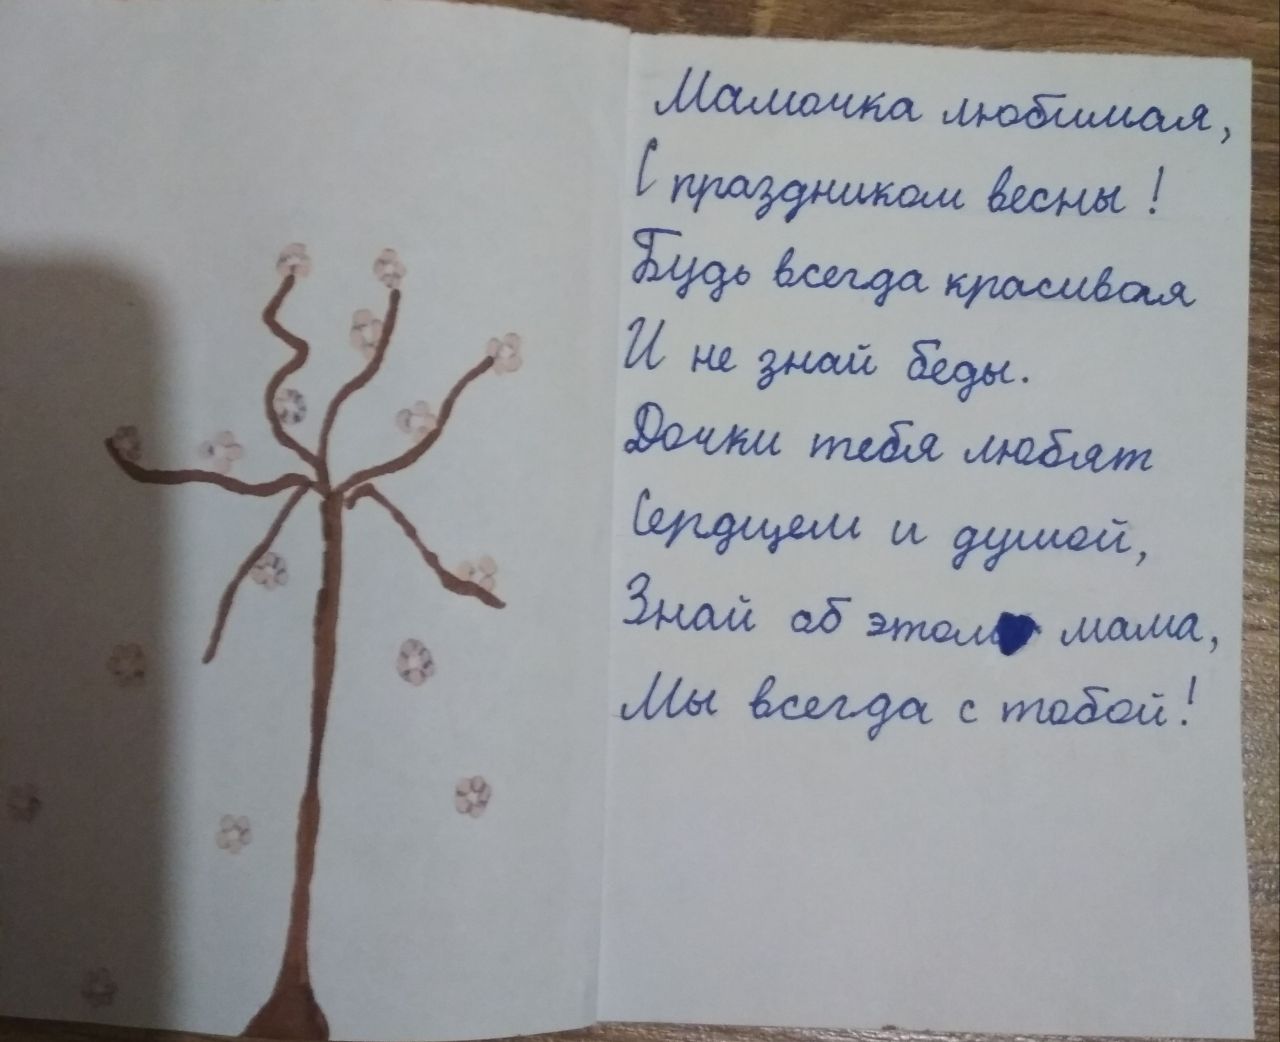 Мамочка любимая,
С праздником весны!
Будь всегда красивая
И не знай беды.
Дочки тебя любят
Сердцем и душой,
Знай об этом мама,
Мы всегда с тобой!